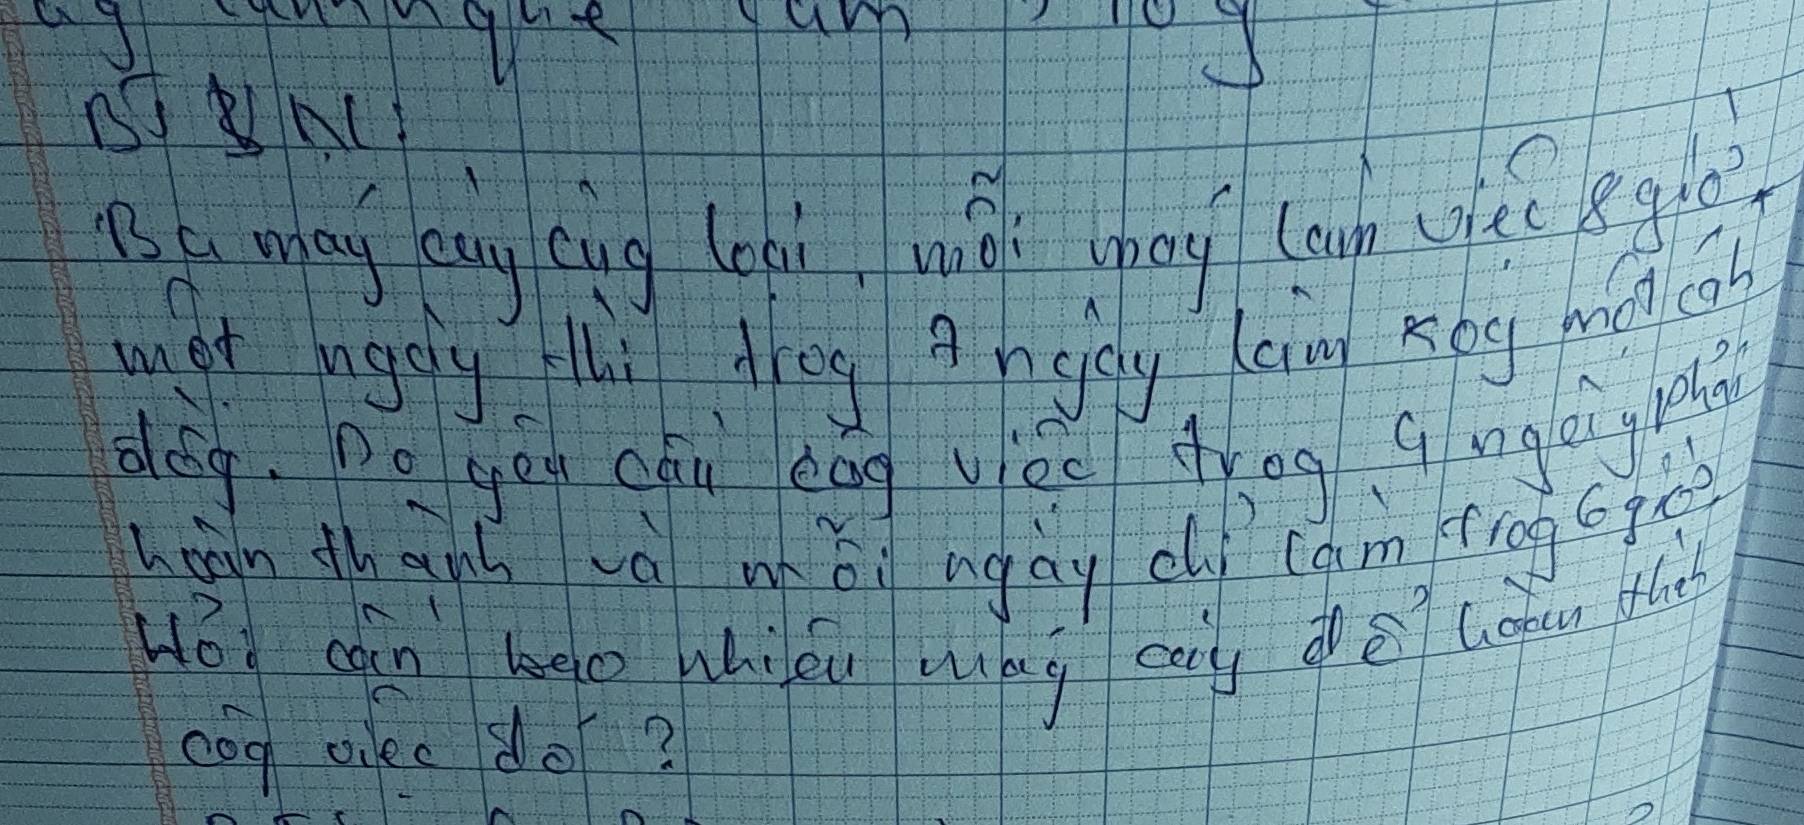 Ba máy cày cùg loại, mỗi máy làm việc 8 giờ
một ngày thì trog 7 ngày làm xog một cáh
đồg. Do yêu cầu côg việc trog 4 ngày phải
hoàn thành và mỗi ngày chỉ làm trog 6 giờ
Hỏi cần bao nhiêu máy cày để hoàn thàh
côg việc đó ?